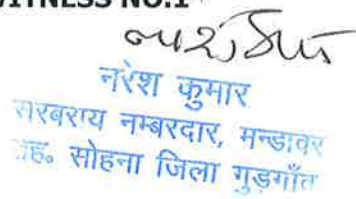 WITNESS NO.1
नरेश कुमार
सरबराय नम्बरदार, मन्डावर
तह. सोहना जिला गुड़गाँव